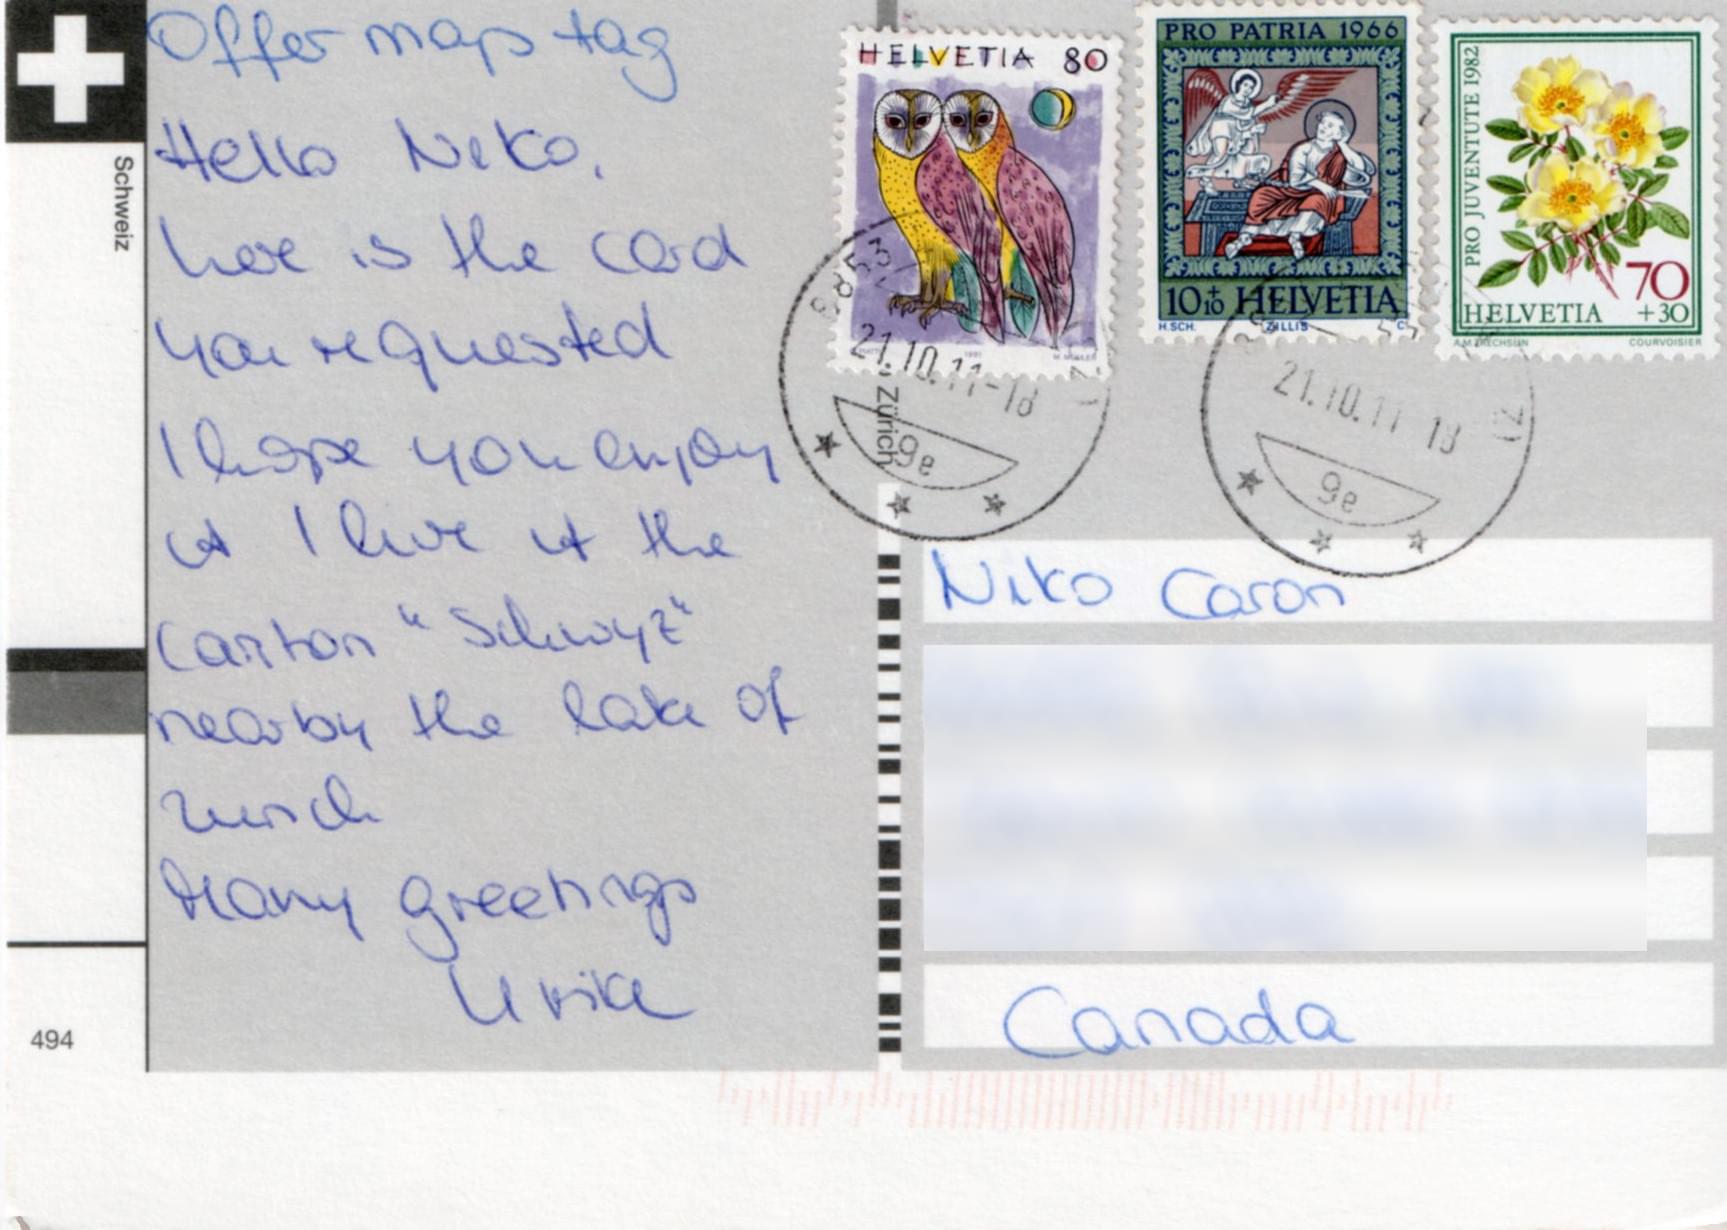 Offer map tag
Hello Niko,
here is the card
you requested
I hope you enjoy
it I live at the
Canton "Schwyz"
nearby the lake of
Zurich
Many greetings
Ulrike
Schweiz
494
HELVETIA 80
PRO PATRIA 1966
10+10 HELVETIA
H.SCH. ZILLIS C
PRO JUVENTUTE 1982
70
HELVETIA +30
COURVOISIER
8853
21.10.11-18
9e
Zürich
21.10.11-18
9e
Niko Caron
Canada